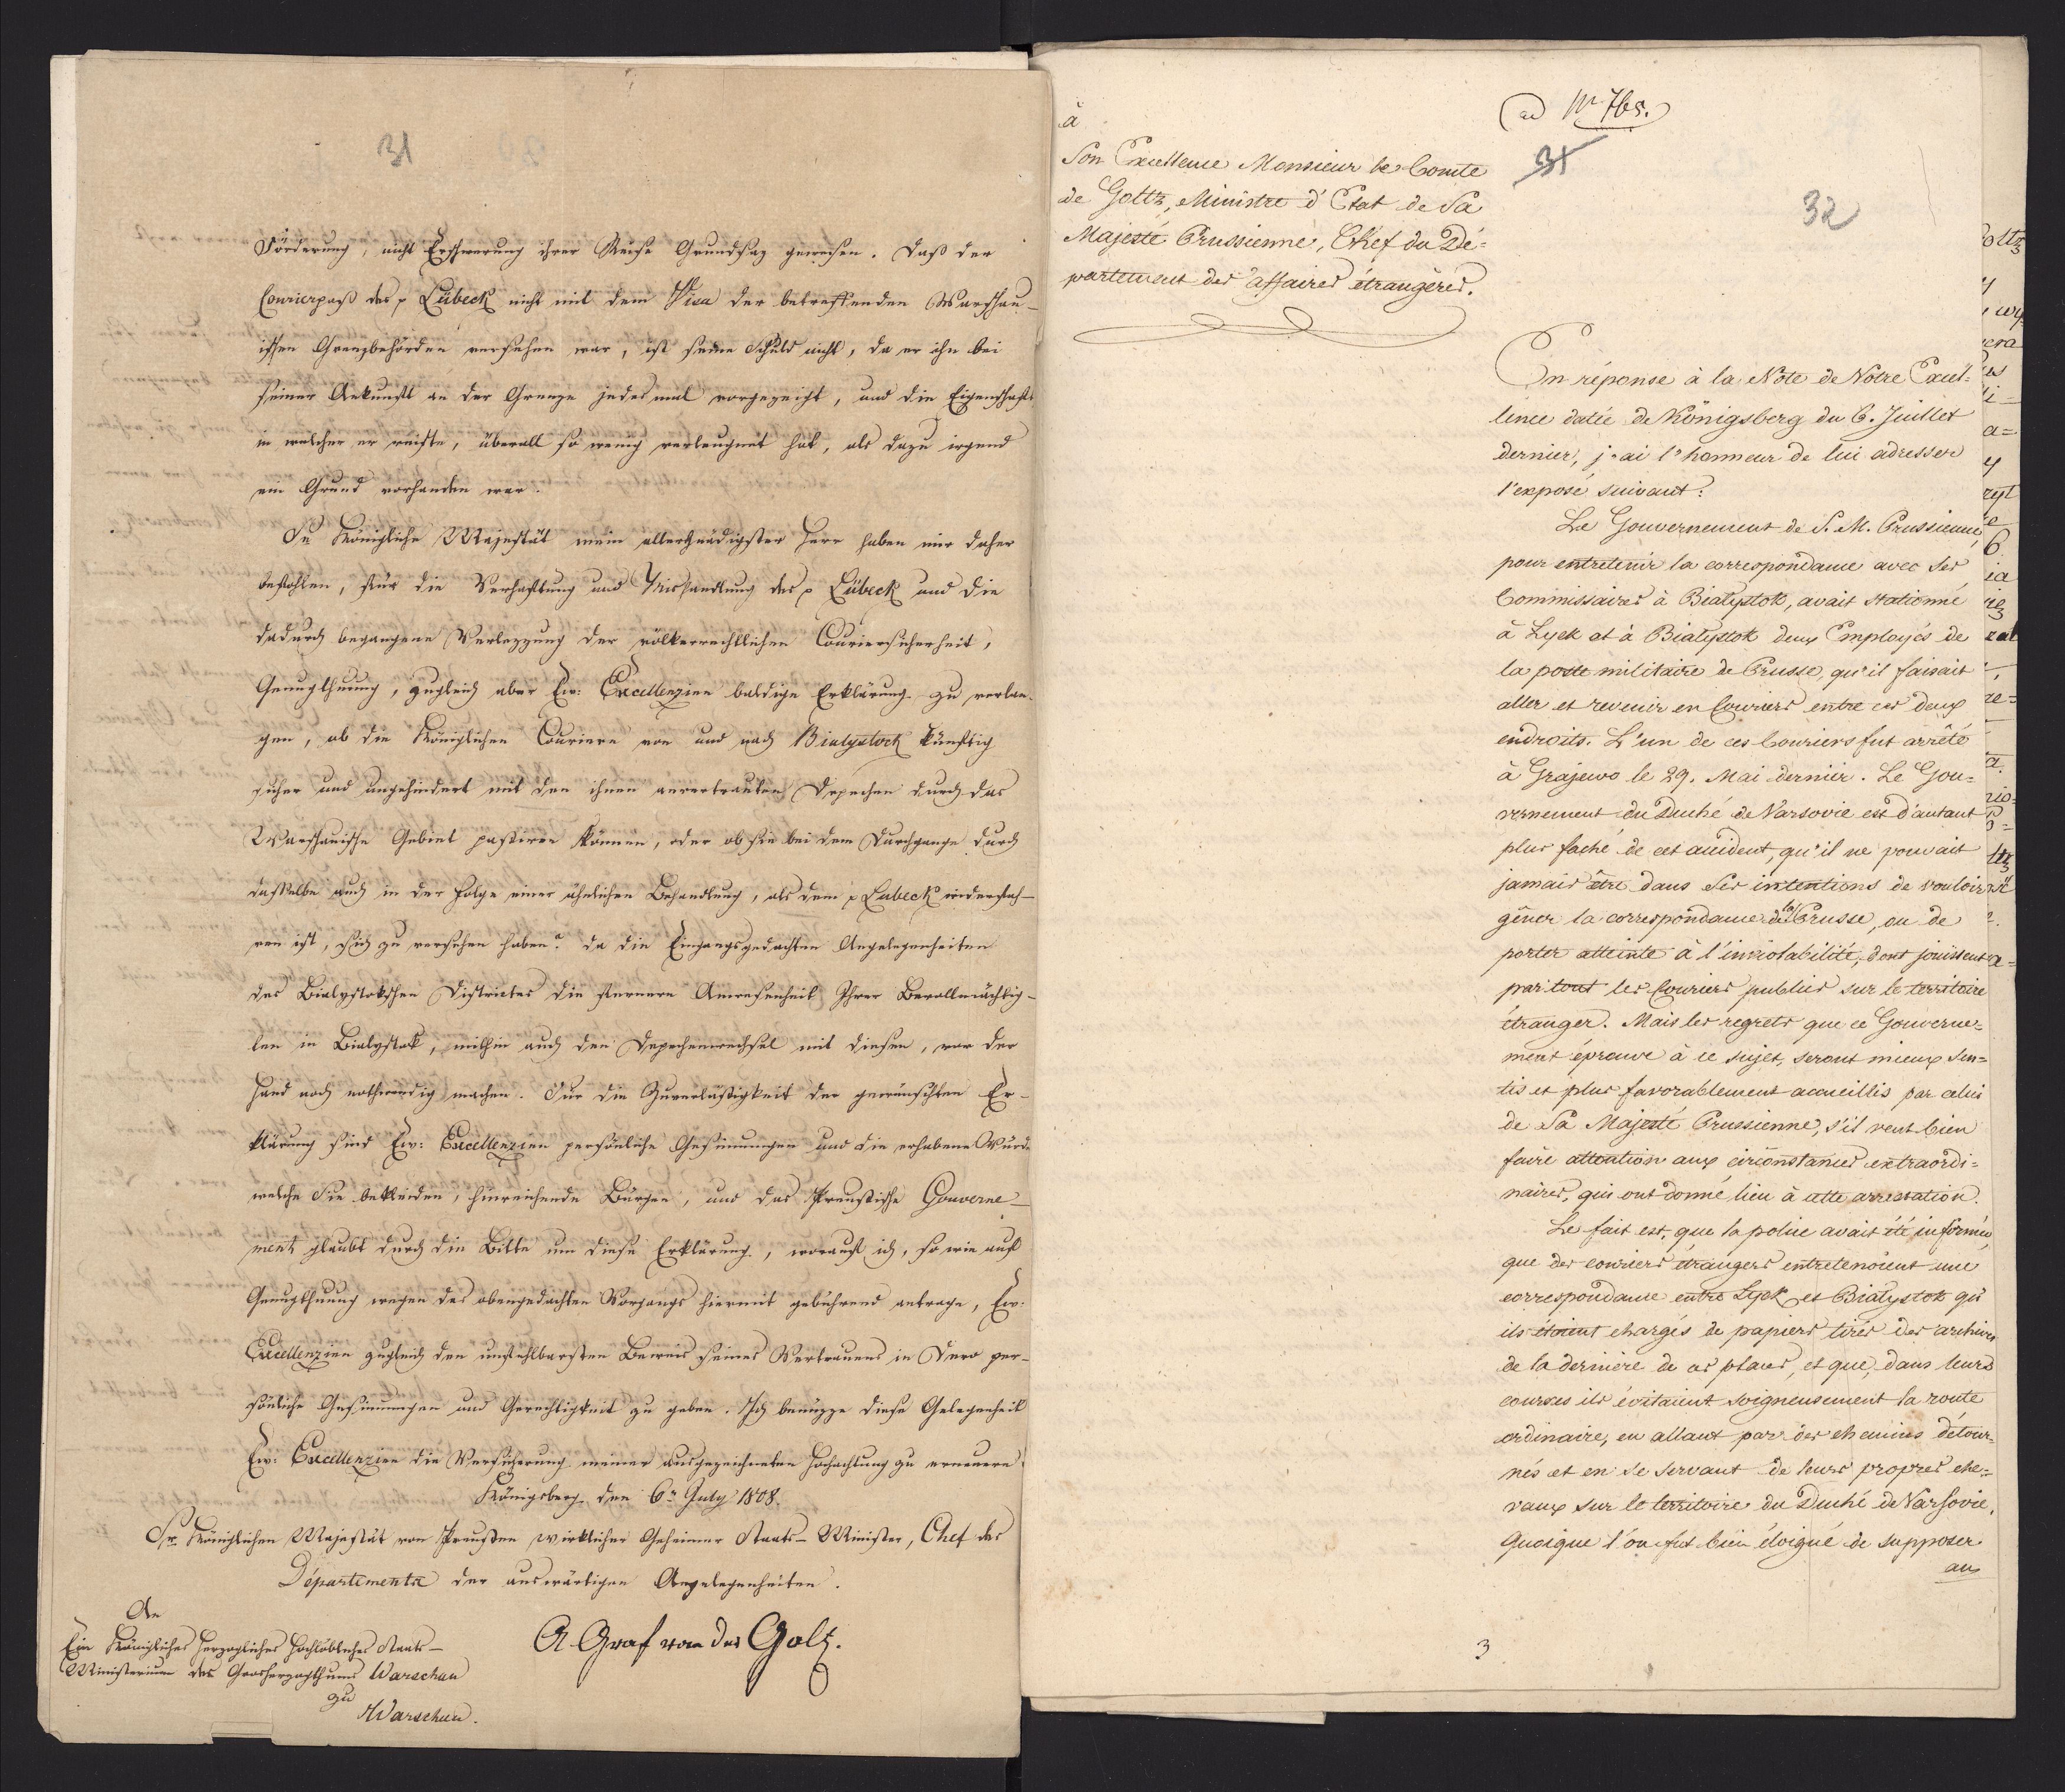 31
Förderung, nicht Erschwerung ihrer Reise Grundsaz gewesen. Daß der
Courierpaß des p Lübeck nicht mit dem Visa der betreffenden Warschau-
ischen Grenzbehörden versehen war, ist seine Schuld nicht, da er ihn bei
seiner Ankunft an der Grenze jedesmal vorgezeigt, und die Eigenschaft
in welcher er reiste, überall so wenig verleugnet hat, als dazu irgend
ein Grund vorhanden war.
Se Königliche Majestät mein allergnädigster Herr haben mir daher
befohlen, für die Verhaftung und Mishandlung des p Lübeck und die
dadurch begangene Verlezzung der völkerrechtlichen Couriersicherheit,
Genugthuung, zugleich aber Ew: Excellenzien baldige Erklärung zu verlan-
gen, ob die Königlichen Couriere von und nach Bialystock künftig
sicher und ungehindert mit den ihnen anvertrauten Depechen durch das
Warschauische Gebiet passiren können, oder ob sie bei dem Durchgange durch
dasselbe auch in der Folge einer ähnlichen Behandlung, als dem p Lubeck wiederfah-
ren ist, sich zu versehen haben? da die Eingangsgedachten Angelegenheiten
des Bialystokschen Districtes die fernere Anwesenheit Ihrer Bevollmächtig-
ten in Bialystok, mithin auch den Depechenwechsel mit diesen, vor der
Hand noch nothwendig machen. Für die Zuverläßigkeit der gewünschten Er-
klärung sind Ew: Excellenzien persönliche Gesinnungen und die erhabene Würde
welche Sie bekleiden, hinreichende Bürgen, und das Preußische Gouverne-
ment glaubt durch die Bitte um diese Erklärung, worauf ich, so wie auf
Genugthuung wegen des obengedachten Vorgangs hiermit gebührend antrage, Ew:
Excellenzien zugleich den unfehlbarsten Beweis seines Vertrauens in Dero per-
sönliche Gesinnungen und Gerechtigkeit zu geben. Ich benuzze diese Gelegenheit
Ew: Excellenzien die Versicherung meiner ausgezeichneten Hochachtung zu erneuern
Königsberg den 6n July 1808.
Sr. Königlichen Majestät von Preußen wirklicher Geheimer Staats-Minister, Chef des
Départements der auswärtigen Angelegenheiten.
An
Ein Königliches Herzogliches Hochlöbliches Staats-
Ministerium des Grosherzogthums Warschau
zu
Warschau.
A Graf von der Goltz.
ad Nr 765.
31
32
à
Son Excellence Monsieur le Comte
de Goltz, Ministre d'Etat de Sa
Majesté Prussienne, Chef du Dé=
partement des affaires étrangères.
En réponse à la Note de Votre Excel=
lence datée de Königsberg du 6. Juillet
dernier, j'ai l'honneur de lui adresser
l'exposé suivant:
Le Gouvernement de S. M. Prussienne,
pour entretenir la correspondance avec ses
Commissaires à Bialystok, avait stationné
à Lyck et à Bialystok deux Employés de
la poste militaire de Prusse, qu'il faisait
aller et revenir en Couriers entre ces deux
endroits. L'un de ces Couriers fut arrêté
à Grajewo le 29. Mai dernier. Le Gou=
vernement du Duché de Varsovie est d'autant
plus faché de cet accident, qu'il ne pouvait
jamais être dans ses intentions de vouloir
gêner la correspondance de la Prusse, ou de
porter atteinte à l'inviolabilité, dont jouissent
par tout les Couriers publics sur le territoire
étranger. Mais les regrets que ce Gouverne=
ment éprouve à ce sujet, seront mieux sen=
tis et plus favorablement accueillis par celui
de Sa Majesté Prussienne, s'il veut bien
faire attention aux circonstances extraordi=
naires, qui ont donné lieu à cette arrestation.
Le fait est, que la police avait été informée,
que des couriers étrangers entretenoient une
correspondance entre Lyck et Bialystok qu'
ils étoient chargés de papiers tirés des archives
de la dernière de ces places, et que, dans leurs
courses ils évitaient soigneusement la route
ordinaire, en allant par des chemins détour=
nés et en se servant de leurs propres che=
vaux sur le territoire du Duché de Varsovie.
Quoique l'on fut bien éloigné de supposer
aux
3